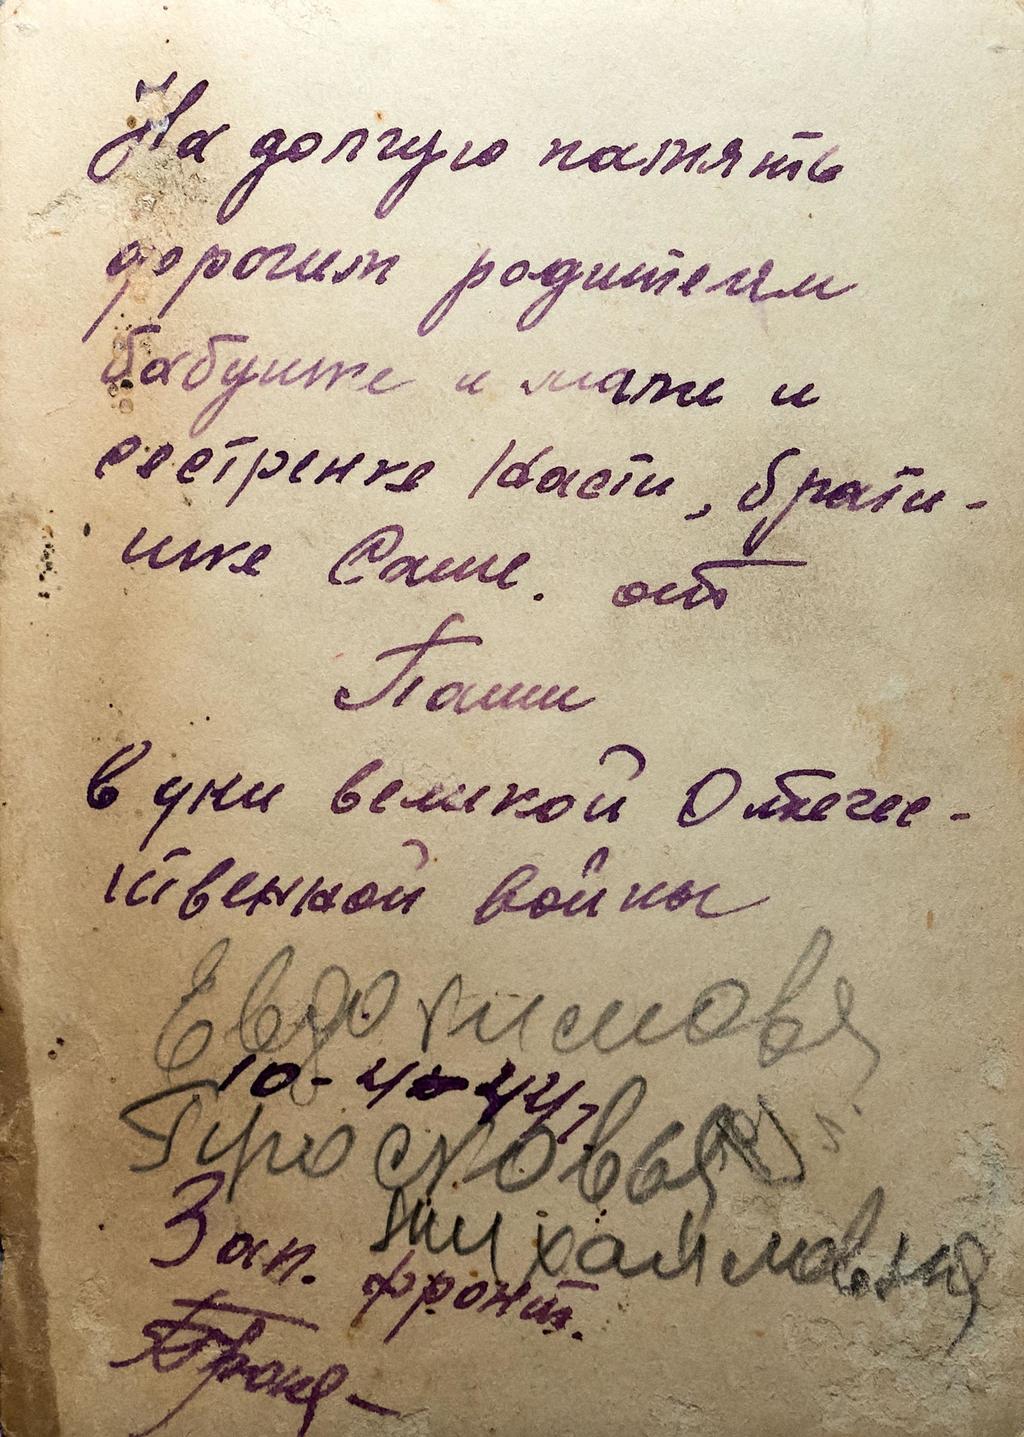 На долгую память
дорогим родителям
бабушке и маме и
сестренке Насти, брати-
шке Саше. от
Паши
в дни великой Отечес-
ственной войны
Евдокимова
10-4-44г.
Просковья
Михайловна
Зап. фронт.